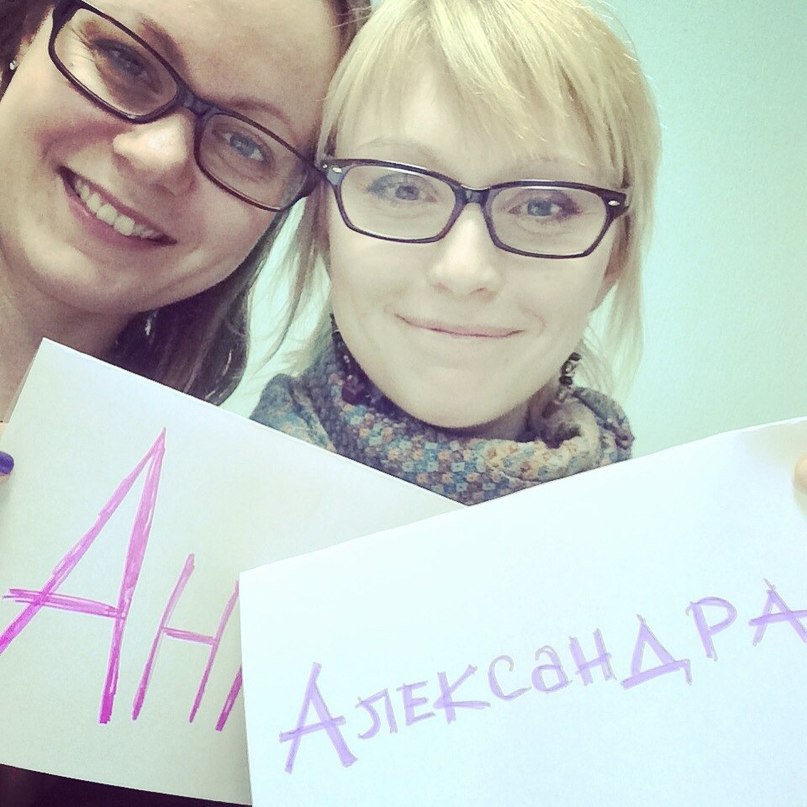 Ан
Александра